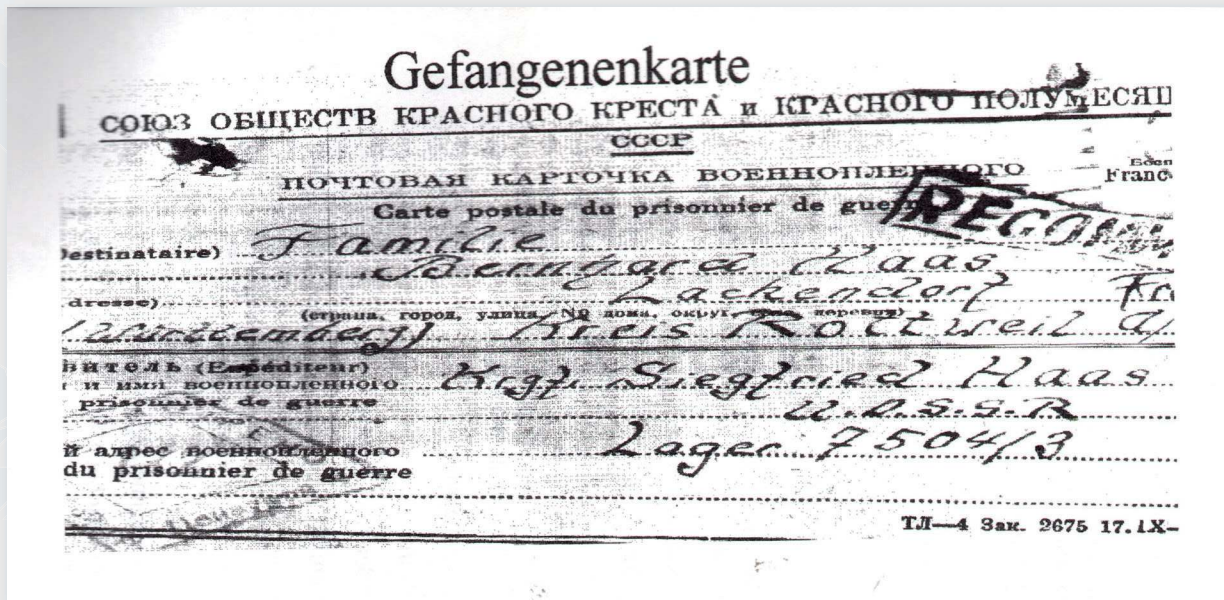 Gefangenenkarte
СОЮЗ ОБЩЕСТВ КРАСНОГО КРЕСТА и КРАСНОГО ПОЛУМЕСЯЦ
СССР
ПОЧТОВАЯ КАРТОЧКА ВОЕННОПЛЕННОГО
Franc
Carte postale du prisonnier de guerre
Destinataire) Familie
Bernhard Haas
dresse) Lackendorf
(страна, город, улица, № дома, округ, деревня)
(Württemberg) Kreis Rottweil a/
витель (Expéditeur)
и имя военнопленного Krgf. Siegfried Haas
prisonnier de guerre
U.d.S.S.R
й адрес военнопленного Lager 7504/3
du prisonnier de guerre
ТЛ—4 Зак. 2675 17.IX—